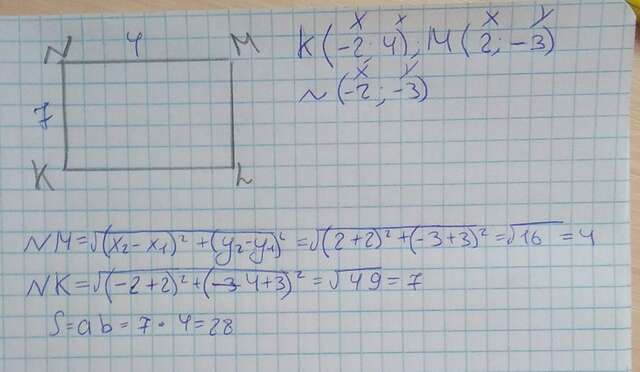 N 4 M
7
K L
x x x y
K(-2; 4); M(2; -3)
x y
N(-2; -3)
NM=√(x₂-x₁)²+(y₂-y₁)²=√(2+2)²+(-3+3)²=√16=4
NK=√(-2+2)²+(-3 4+3)²=√49=7
S=ab=7·4=28